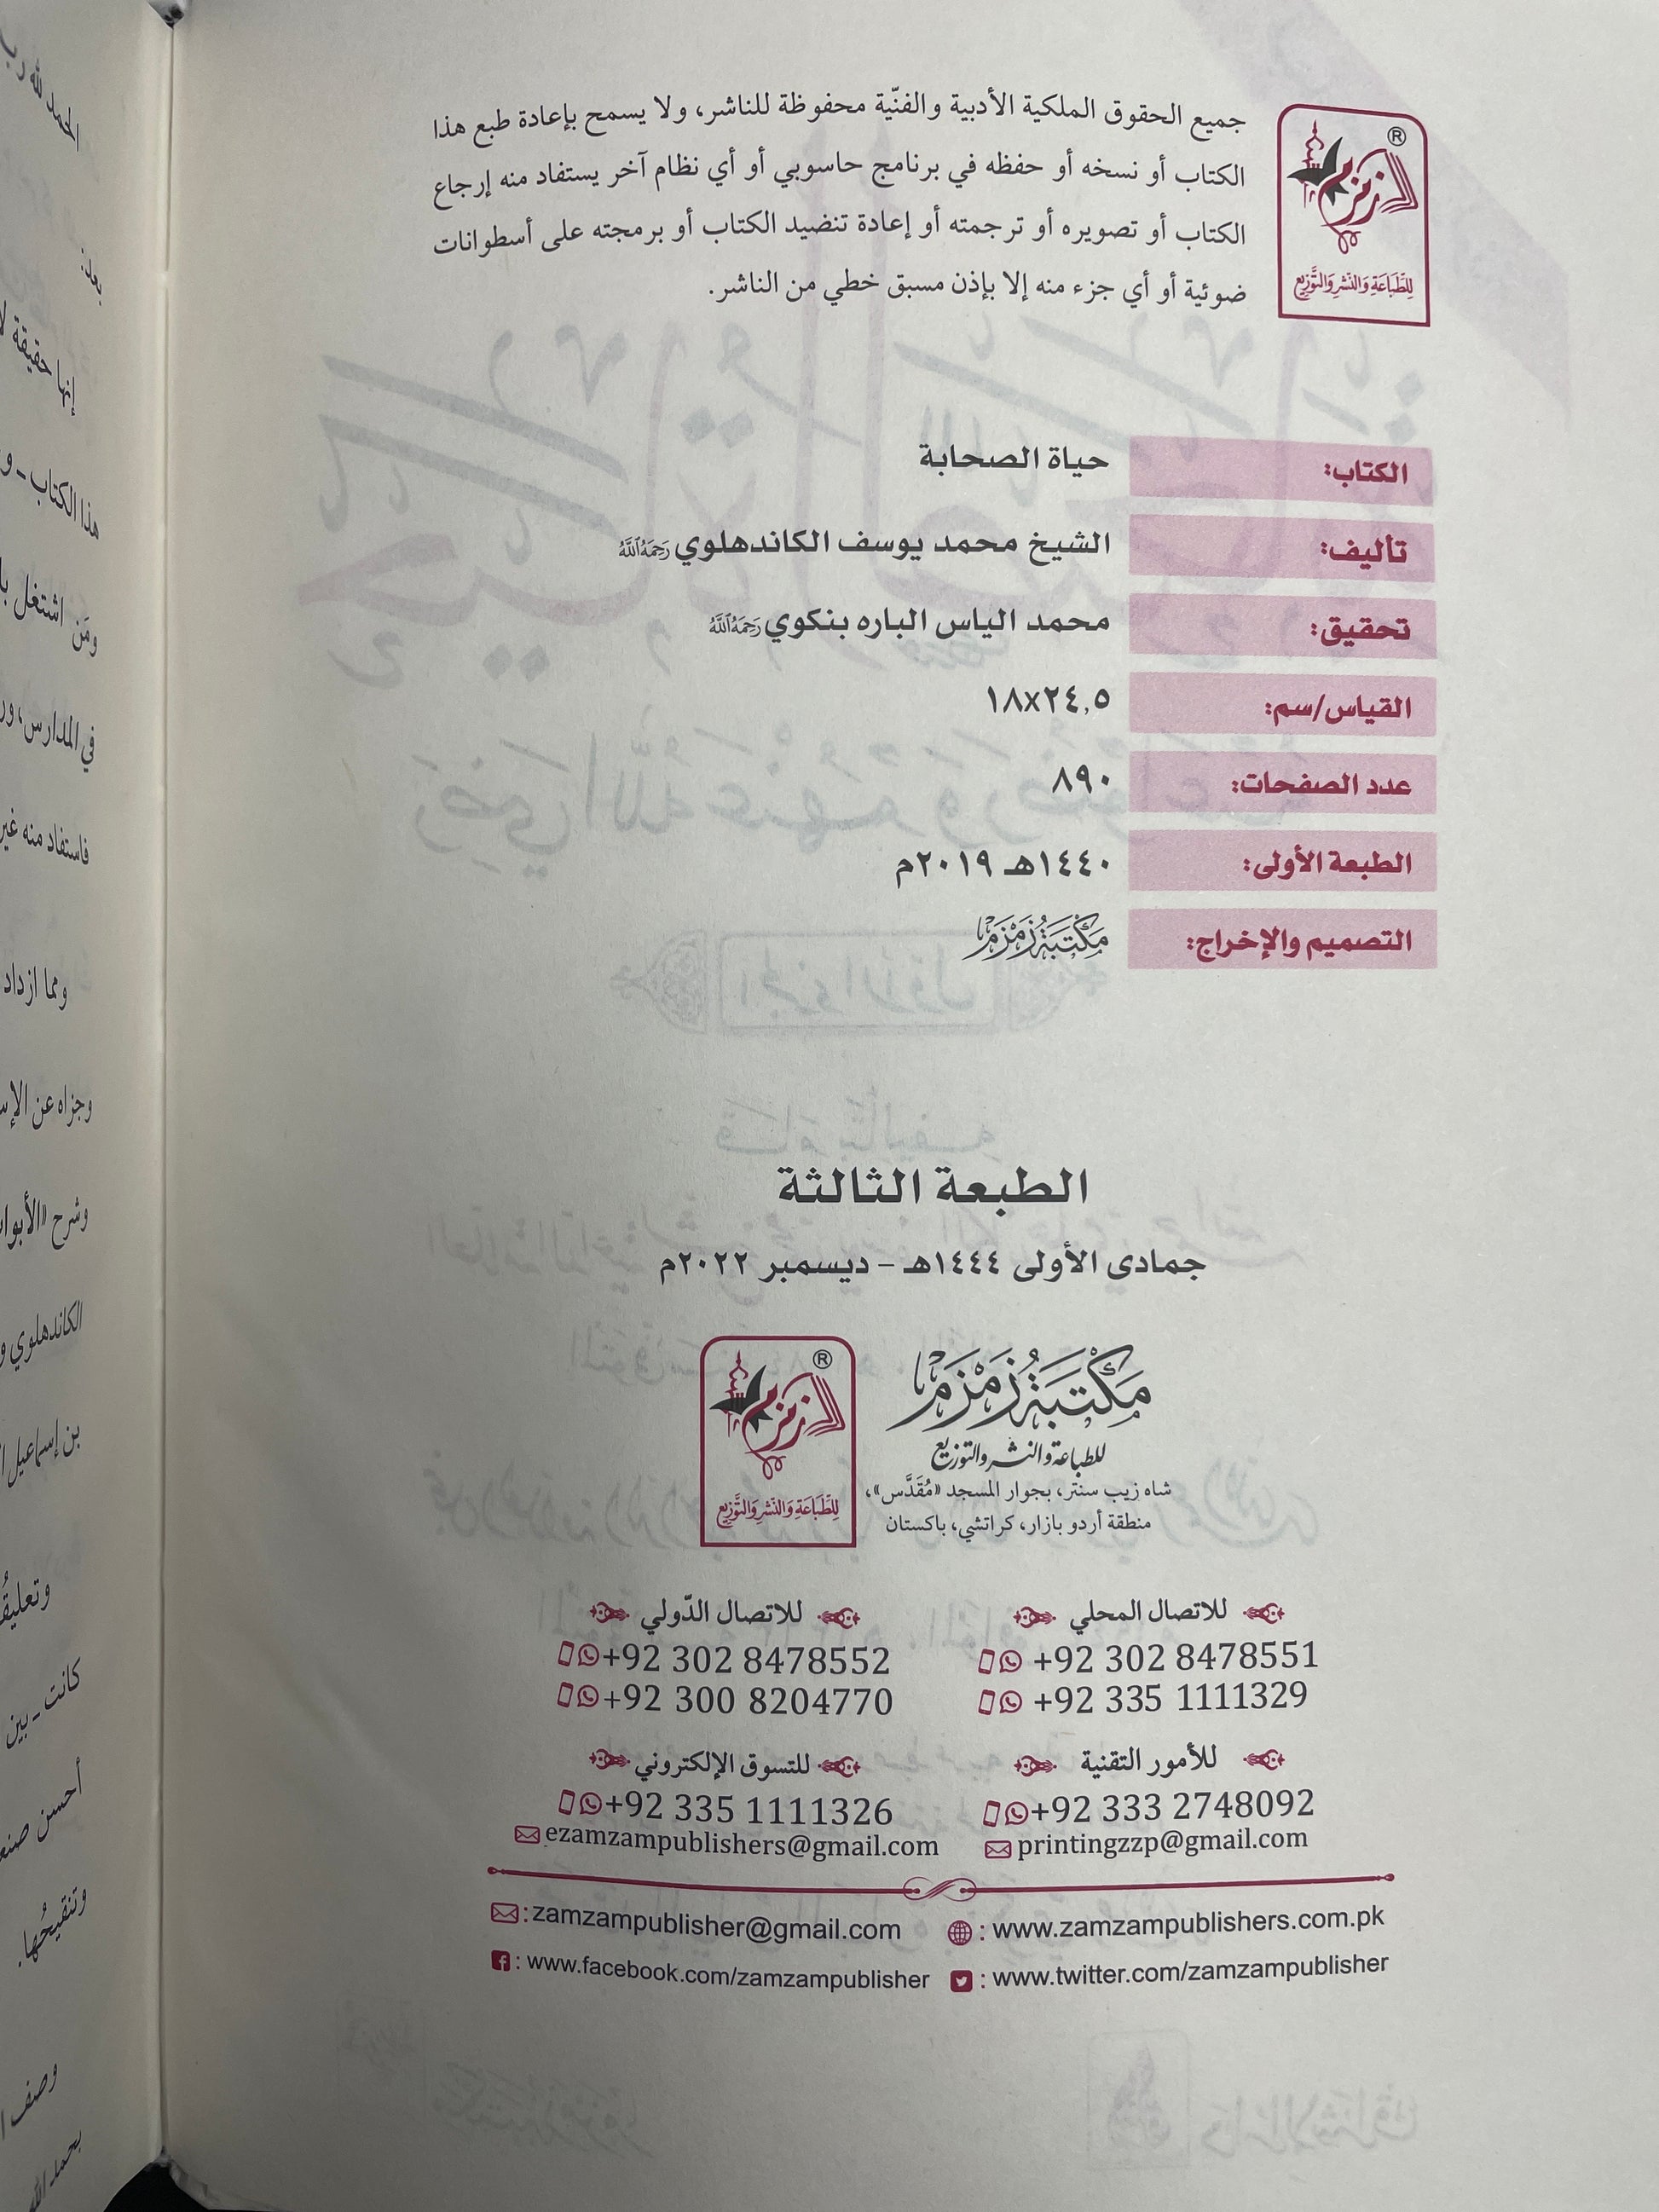 جميع الحقوق الملكية الأدبية والفنّية محفوظة للناشر، ولا يسمح بإعادة طبع هذا
الكتاب أو نسخه أو حفظه في برنامج حاسوبي أو أي نظام آخر يستفاد منه إرجاع
الكتاب أو تصويره أو ترجمته أو إعادة تنضيد الكتاب أو برمجته على أسطوانات
ضوئية أو أي جزء منه إلا بإذن مسبق خطي من الناشر.
زمزم ®
للطِّبَاعَةِ وَالنَّشرِ وَالتَّوزِيع
الكتاب: حياة الصحابة
تأليف: الشيخ محمد يوسف الكاندهلوي رَحِمَهُ ٱللَّهُ
تحقيق: محمد الياس الباره بنكوي رَحِمَهُ ٱللَّهُ
القياس/سم: ١٨x٢٤,٥
عدد الصفحات: ٨٩٠
الطبعة الأولى: ١٤٤٠هـ ٢٠١٩م
التصميم والإخراج: مَكْتَبَة زَمْزَم
الطبعة الثالثة
جمادى الأولى ١٤٤٤هـ – ديسمبر ٢٠٢٢م
مَكْتَبَة زَمْزَم
للطباعة والنشر والتوزيع
شاه زيب سنتر، بجوار المسجد «مُقَدَّس»،
منطقة أردو بازار، كراتشي، باكستان
زمزم ®
للطِّبَاعَةِ وَالنَّشرِ وَالتَّوزِيع
للاتصال المحلي
+92 302 8478551
+92 335 1111329
للاتصال الدّولي
+92 302 8478552
+92 300 8204770
للأمور التقنية
+92 333 2748092
printingzzp@gmail.com
للتسوق الإلكتروني
+92 335 1111326
ezamzampublishers@gmail.com
:zamzampublisher@gmail.com
: www.zamzampublishers.com.pk
: www.facebook.com/zamzampublisher
: www.twitter.com/zamzampublisher
إنها حقيقة
هذا الكتاب ـ و
ومَن اشتغل
في المدارس، ور
فاستفاد منه غير
ومما ازداد
وجزاه عن
وشرح «الأبواب
الكاندهلوي و
بن إسماعيل
كانت ـ بين
أحسن
وتنقيحُها.
وصف
بحمد الله